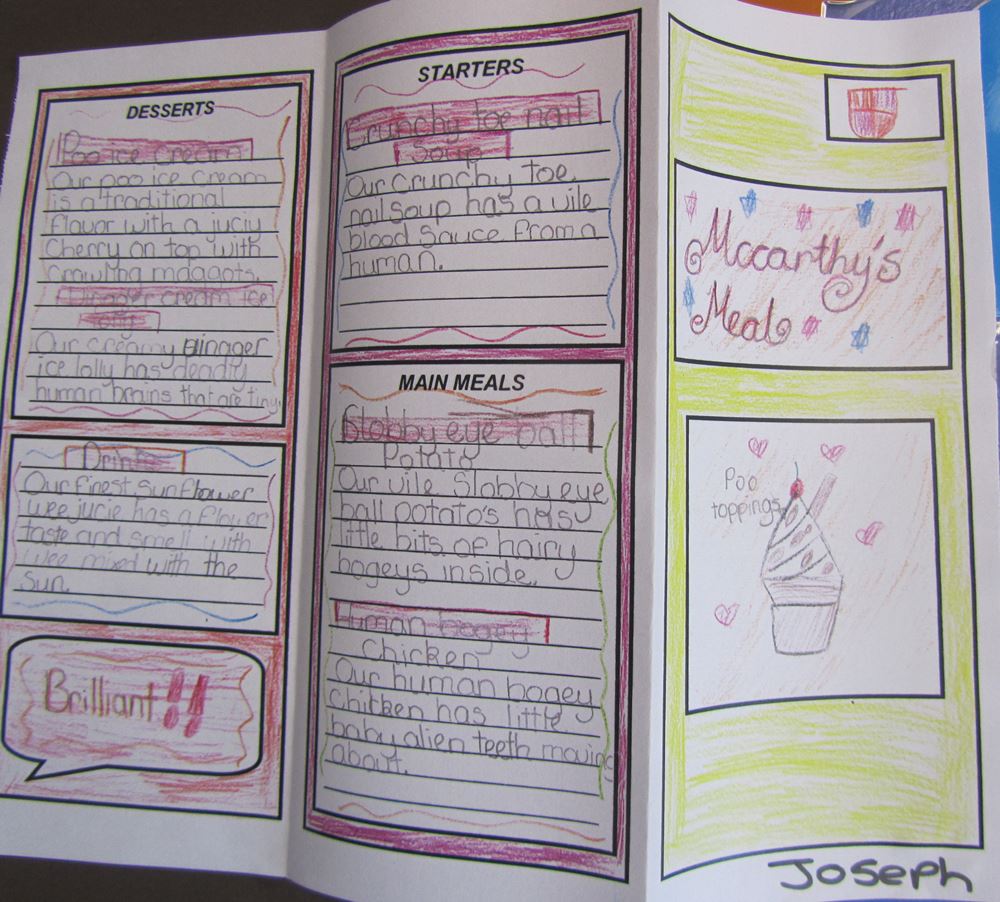 DESSERTS
Poo ice cream
Our poo ice cream
is a traditional
flavor with a juciy
Cherry on top with
crawling maggots.
cream ice
lolly
Our creamy Ginager
ice lolly has deadly
human brains that are tiny.
Drinks
Our finest sunflower
wee jucie has a flower
taste and smell with
wee mixed with the
sun.
Brilliant!!
STARTERS
Crunchy toe nail
Soup
Our crunchy toe
nail soup has a vile
blood sauce from a
human.
MAIN MEALS
Slobby eye ball
Potato
Our vile Slobby eye
ball potato's has
little bits of hairy
bogeys inside.
Human bogey
Chicken
Our human bogey
Chicken has little
baby alien teeth moving
about.
Mccarthy's
Meal
Poo
toppings
JOSEPH